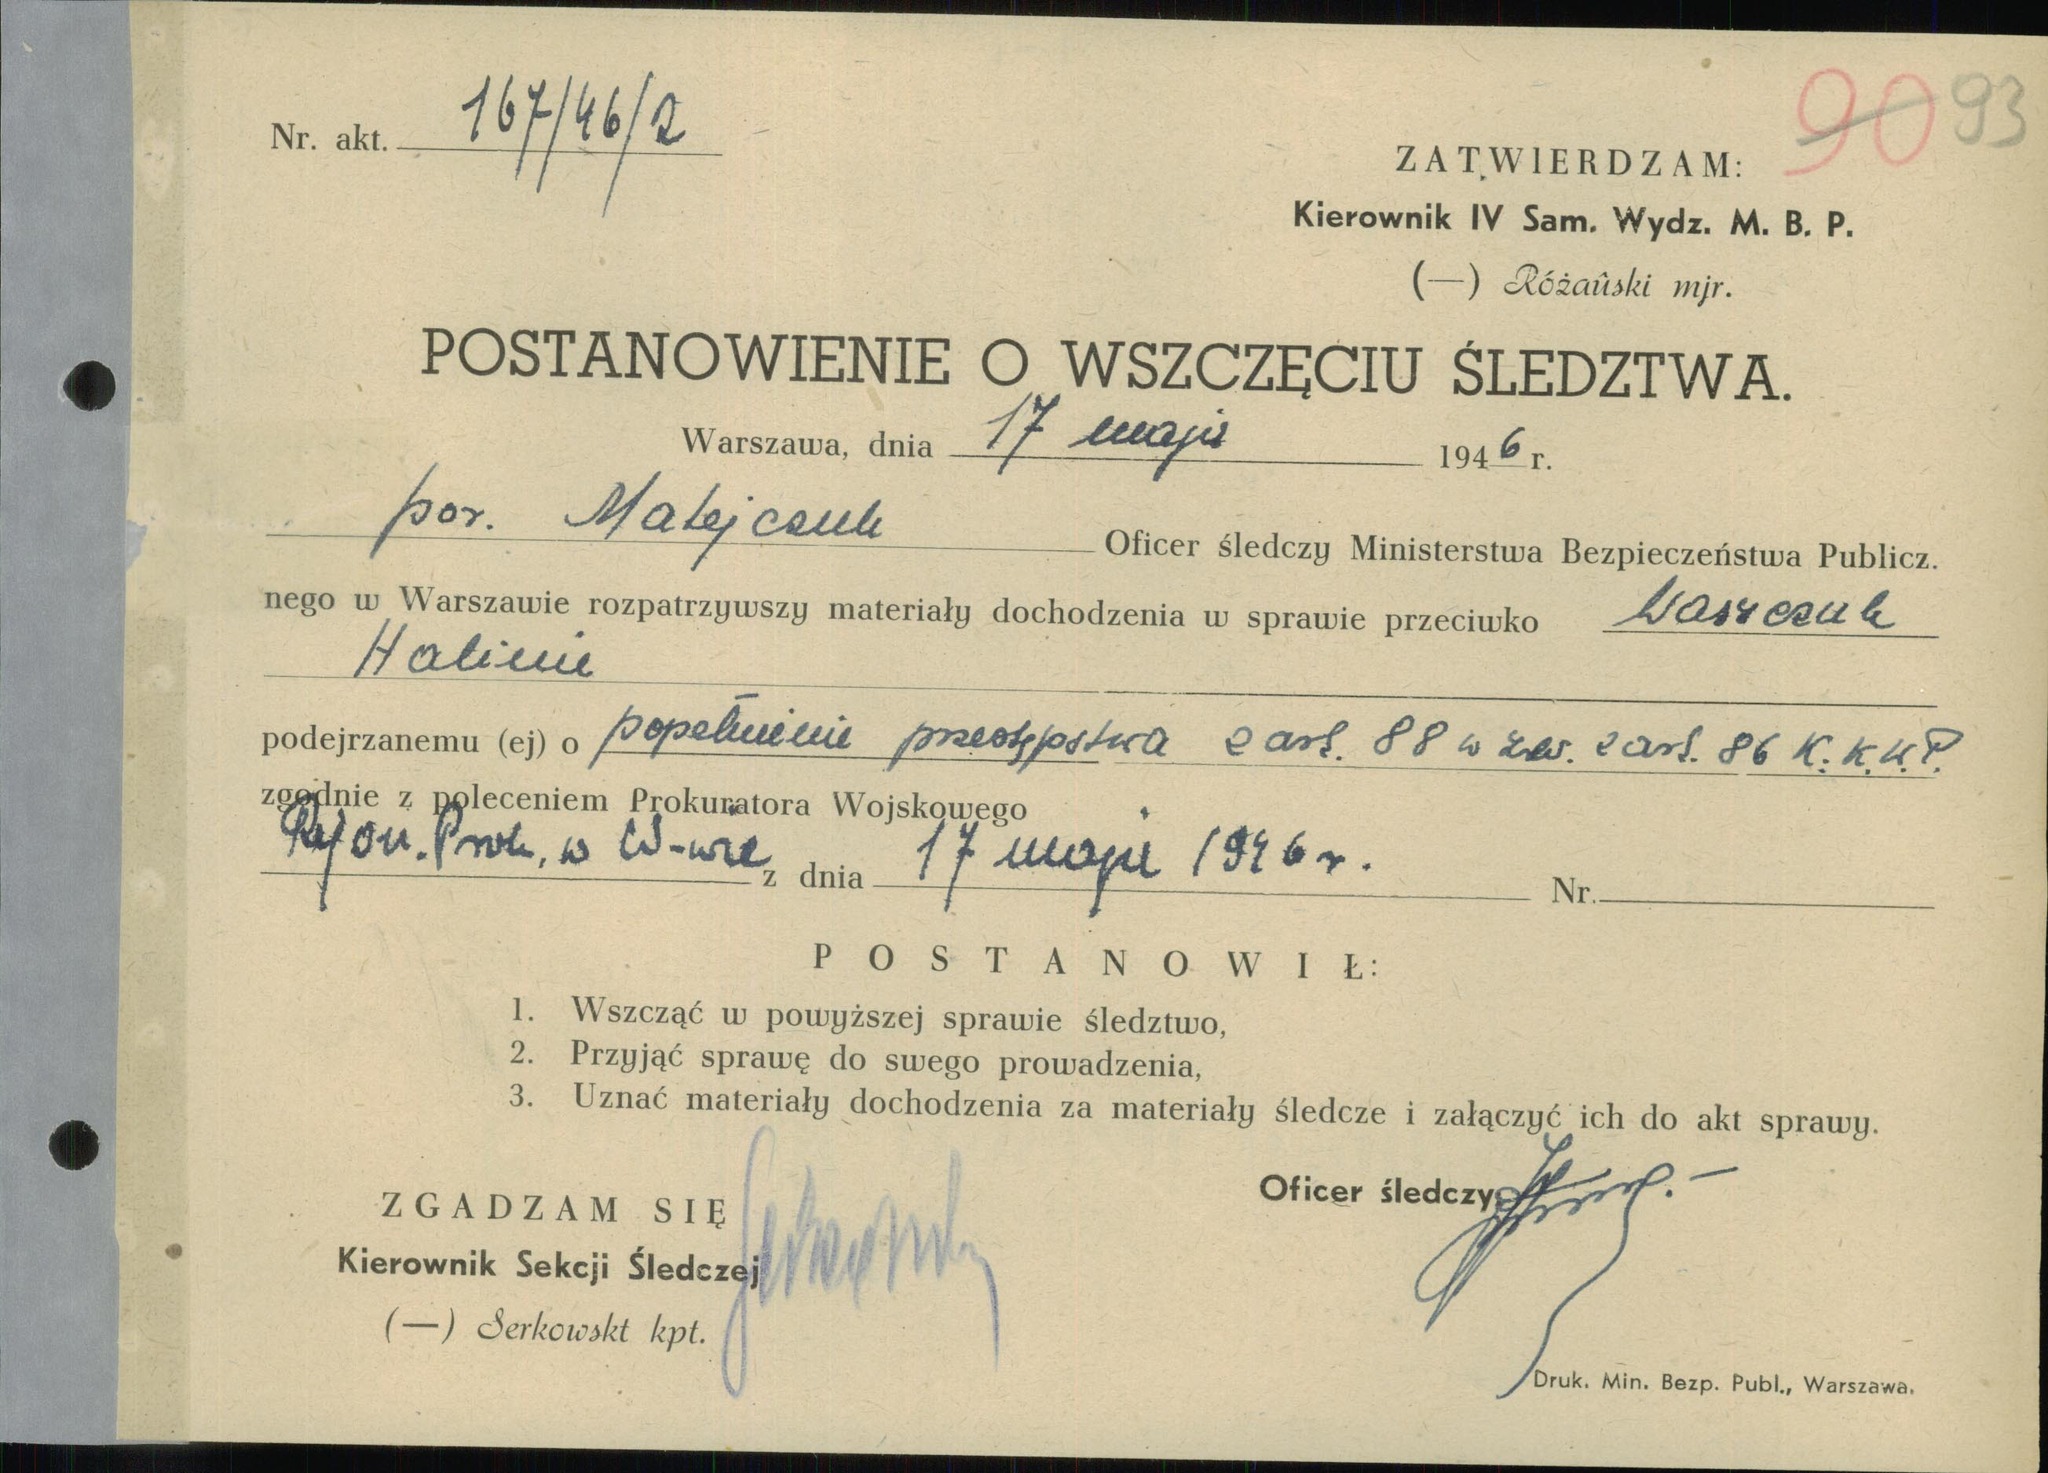 90 93
Nr. akt. 167/46/2
ZATWIERDZAM:
Kierownik IV Sam. Wydz. M. B. P.
(—) Różański mjr.
POSTANOWIENIE O WSZCZĘCIU ŚLEDZTWA.
Warszawa, dnia 17 maja 1946 r.
por. Matejczuk Oficer śledczy Ministerstwa Bezpieczeństwa Publicz.
nego w Warszawie rozpatrzywszy materiały dochodzenia w sprawie przeciwko Waszczuk
Halinie
podejrzanemu (ej) o popełnienie przestępstwa z art. 88 w zw. z art. 86 K.K.W.P.
zgodnie z poleceniem Prokuratora Wojskowego
Rejon. Prok. w W-wie z dnia 17 maja 1946 r. Nr.
POSTANOWIŁ:
1. Wszcząć w powyższej sprawie śledztwo,
2. Przyjąć sprawę do swego prowadzenia,
3. Uznać materiały dochodzenia za materiały śledcze i załączyć ich do akt sprawy.
ZGADZAM SIĘ
Oficer śledczy
Kierownik Sekcji Śledczej
(—) Serkowskt kpt.
Druk. Min. Bezp. Publ., Warszawa.